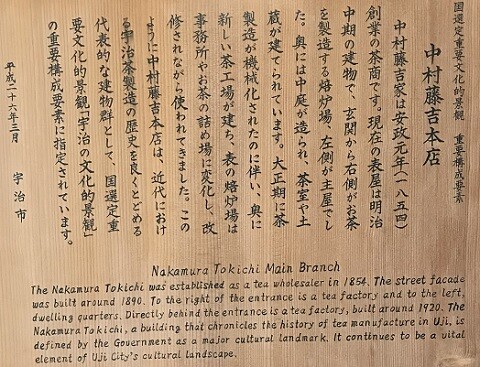 国選定重要文化的景観　重要構成要素
中村藤吉本店
中村藤吉家は安政元年(一八五四)
創業の茶商です。現在の表屋は明治
中期の建物で、玄関から右側がお茶
を製造する焙炉場、左側が主屋でし
た。奥には中庭が造られ、茶室や土
蔵が建てられています。大正期に茶
製造が機械化されたのに伴い、奥に
新しい茶工場が建ち、表の焙炉場は
事務所やお茶の詰め場に変化し、改
修されながら使われてきました。この
ように中村藤吉本店は、近代におけ
る宇治茶製造の歴史を良くとどめる
代表的な建物群として、国選定重
要文化的景観「宇治の文化的景観」
の重要構成要素に指定されています。
平成二十六年三月　宇治市
Nakamura Tokichi Main Branch
The Nakamura Tokichi was established as a tea wholesaler in 1854. The street facade
was built around 1890. To the right of the entrance is a tea factory and to the left,
dwelling quarters. Directly behind the entrance is a tea factory, built around 1920. The
Nakamura Tokichi, a building that chronicles the history of tea manufacture in Uji, is
defined by the Government as a major cultural landmark. It continues to be a vital
element of Uji City's cultural landscape.